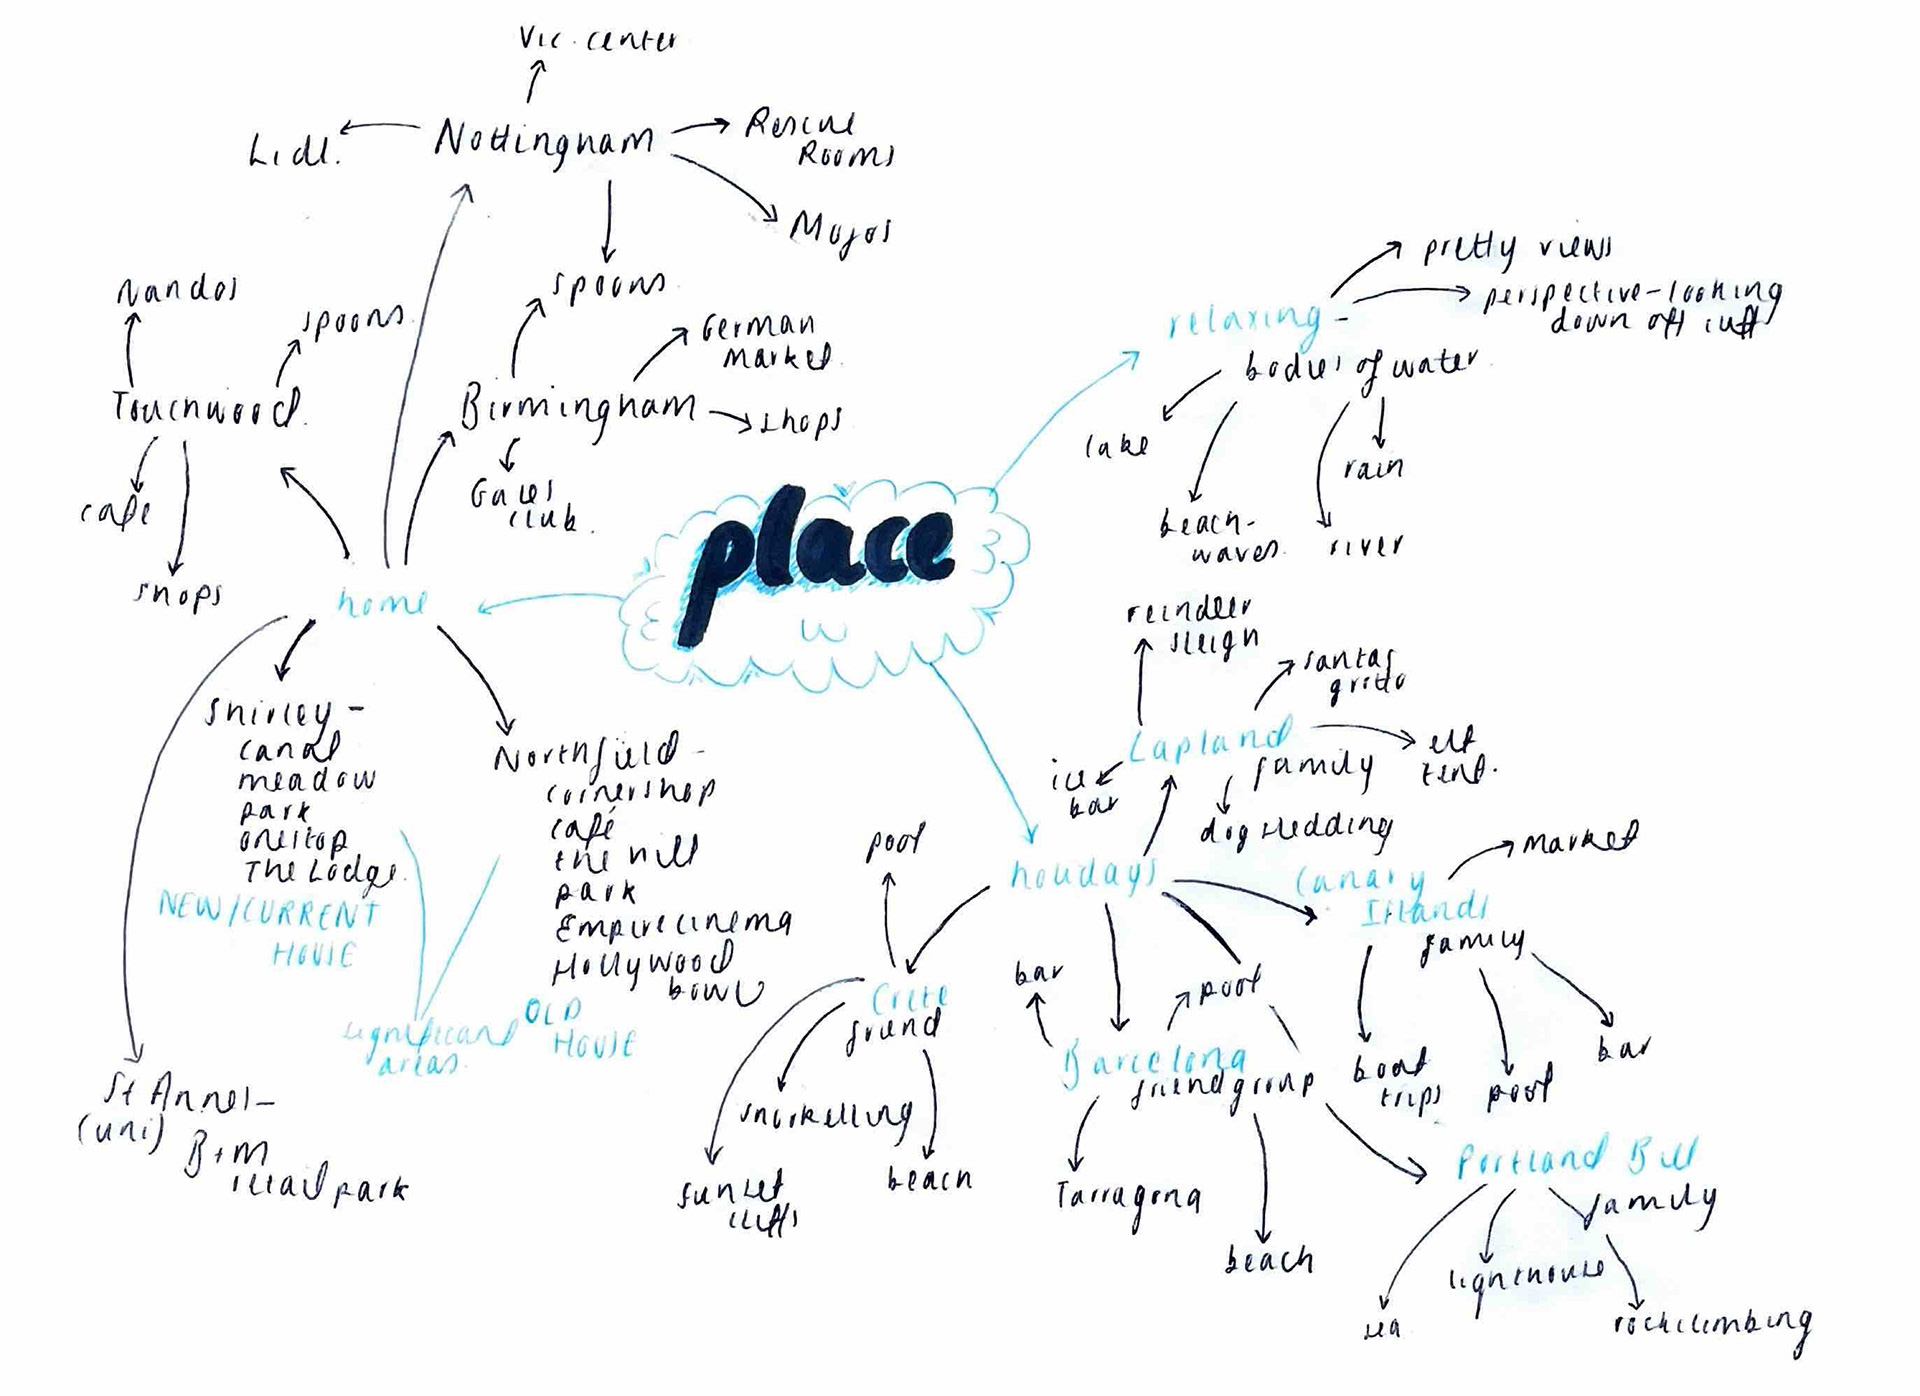 Vic. center
Lidl.
Nottingham
Rescue
Rooms
Mojos
spoons
Nandos
spoons
Touchwood
cafe
shops
German
market
Birmingham
shops
Gales
club.
home
place
relaxing -
pretty views
perspective - looking
down off cliff
bodies of water
lake
beach-
waves
river
rain
Shirley -
canal
meadow
park
onestop
The Lodge
NEW/CURRENT
HOUSE
Northfield -
cornershop
café
the hill
park
Empire cinema
Hollywood
bowl
OLD
HOUSE
significant
areas
St Annes -
(uni)
B+M
retail park
holidays
reindeer
sleigh
santas
grotto
Lapland
family
elf
tent.
ice
bar
dog sledding
pool
Crete
friend
snorkelling
sunset
cliffs
beach
bar
pool
Barcelona
friend group
Tarragona
beach
Canary
Islands
family
market
boat
trips
pool
bar
Portland Bill
family
sea
lighthouse
rockclimbing